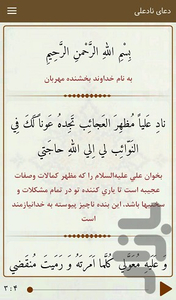 دعای نادعلی
بِسْمِ اللهِ الرَّحْمنِ الرَّحِيْمِ
به نام خداوند بخشنده مهربان
نادِ عَلِياً مُظهِرَ العَجائِب تَجِدهُ عَوناً لَكَ فِي
النَوائِب لی اِلَي اللهِ حاجَتي
بخوان علي عليه‌السلام را که مظهر کمالات وصفات
عجيبه است تا ياري کننده تو در تمام مشکلات و
سختيها باشد. اين بنده ناچيز پيوسته به خدانيازمند
است
وَ عَلَيهِ مُعَوَّلي کُلَّما اَمَرتَهُ وَ رَمَيتَ مُنقَضي
۳:۴
بازار